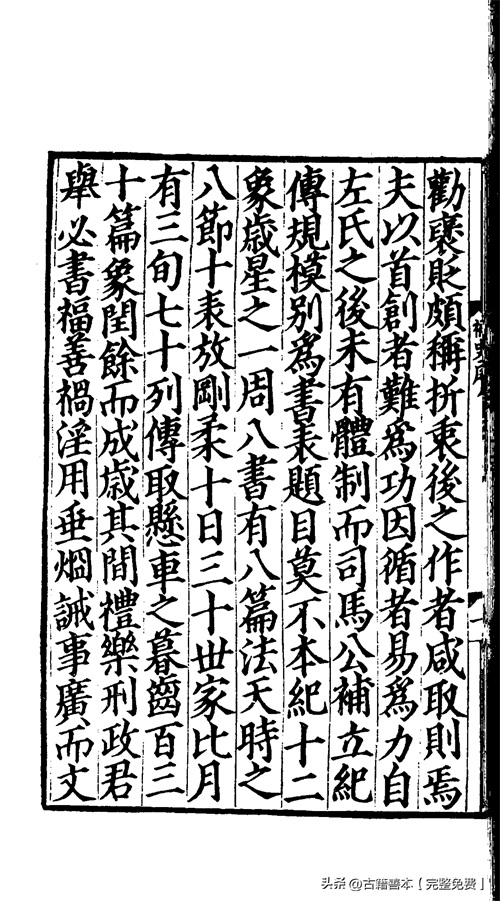 勸襃貶頗稱折衷後之作者咸取則焉
夫以首創者難爲功因循者易爲力自
左氏之後未有體制而司馬公補立紀
傳規模別爲書表題目莫不本紀十二
象歲星之一周八書有八篇法天時之
八節十表放剛柔十日三十丗家比月
有三旬七十列傳取懸車之暮齒百三
十篇象閏餘而成歲其間禮樂刑政君
舉必書福善禍淫用垂烱誡事廣而文
頭条 @古籍善本【完整免费】